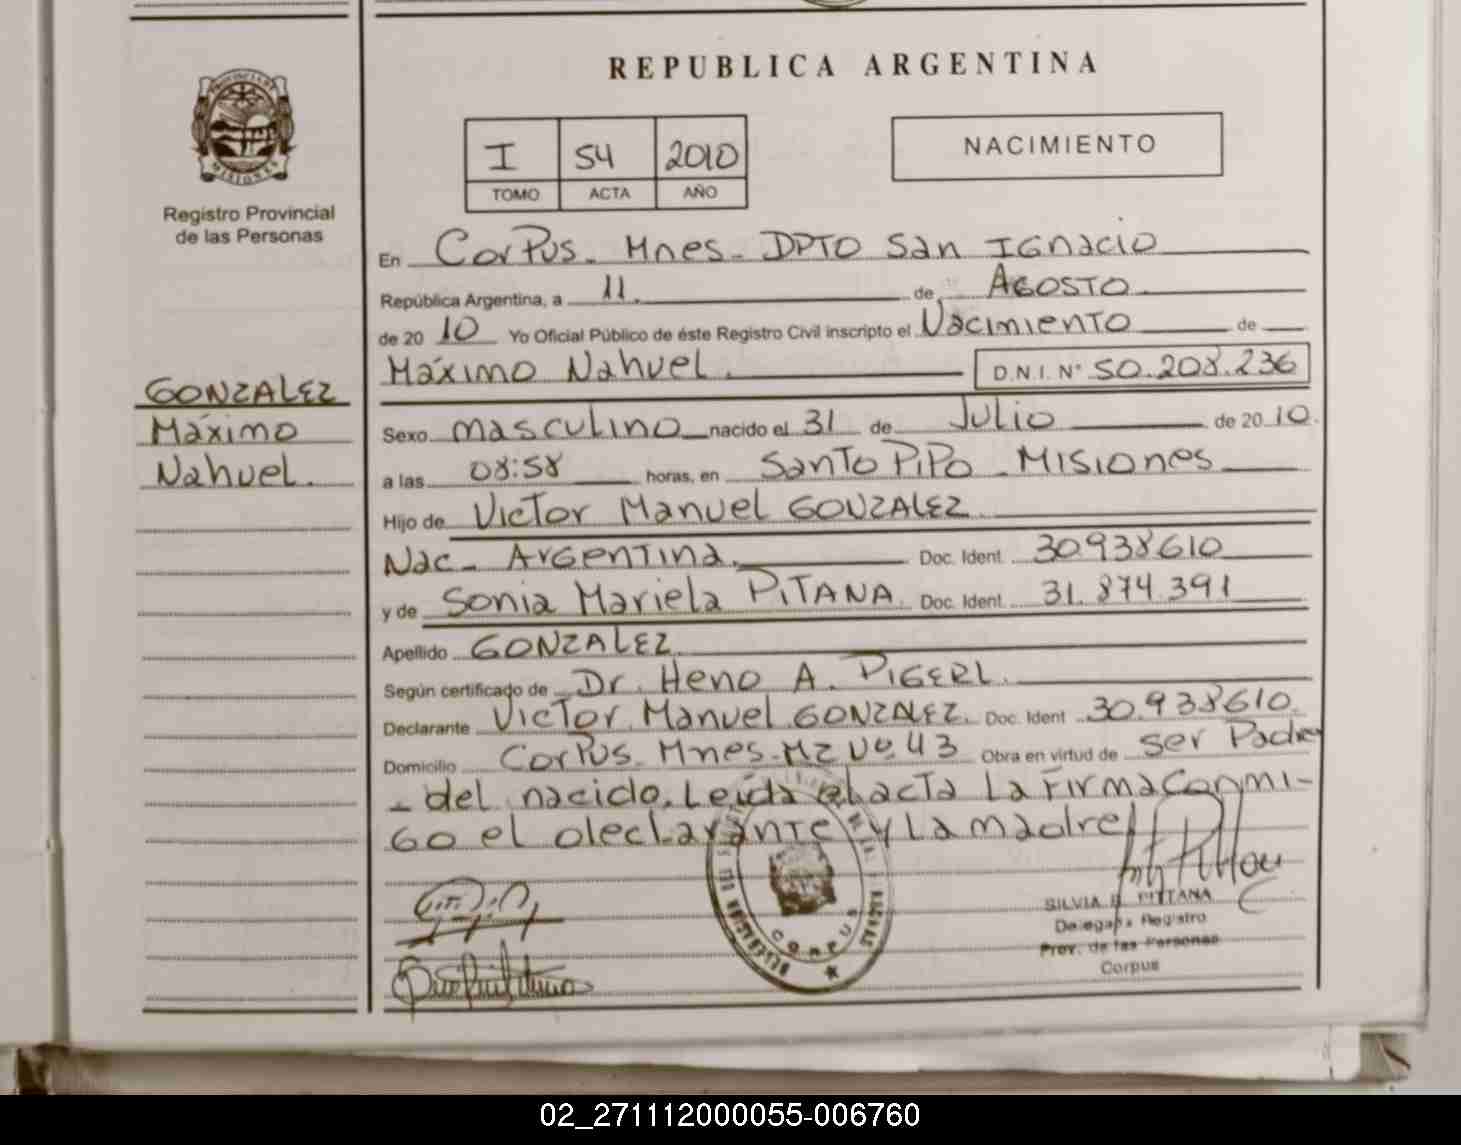 REPUBLICA ARGENTINA
I 54 2010
TOMO ACTA AÑO
NACIMIENTO
PROVINCIA DE
MISIONES
Registro Provincial
de las Personas
GONZALEZ
Máximo
Nahuel.
En Corpus - Mnes - DPTO San IGnacio
República Argentina, a 11. de AGOSTO
de 2010 Yo Oficial Público de éste Registro Civil inscripto el Nacimiento de
Máximo Nahuel. D.N.I. Nº 50.208.236
Sexo masculino nacido el 31 de Julio de 2010.
a las 08:58 horas, en Santo Pipo - Misiones
Hijo de Victor Manuel GONZALEZ
Nac - Argentina. Doc. Ident. 30.938610
y de Sonia Mariela PITANA. Doc. Ident. 31.874.391
Apellido GONZALEZ
Según certificado de Dr. Heno A. PIGERL.
Declarante Victor Manuel GONZALEZ. Doc. Ident 30.938610.
Domicilio Corpus - Mnes - MZ Nº 43 Obra en virtud de ser Padre
- del nacido. Leida el acta La Firma Conmi-
go el declarante y La madre
CORPUS
SILVIA PITTANA
Delegada Registro
Prov. de las Personas
Corpus
02_271112000055-006760